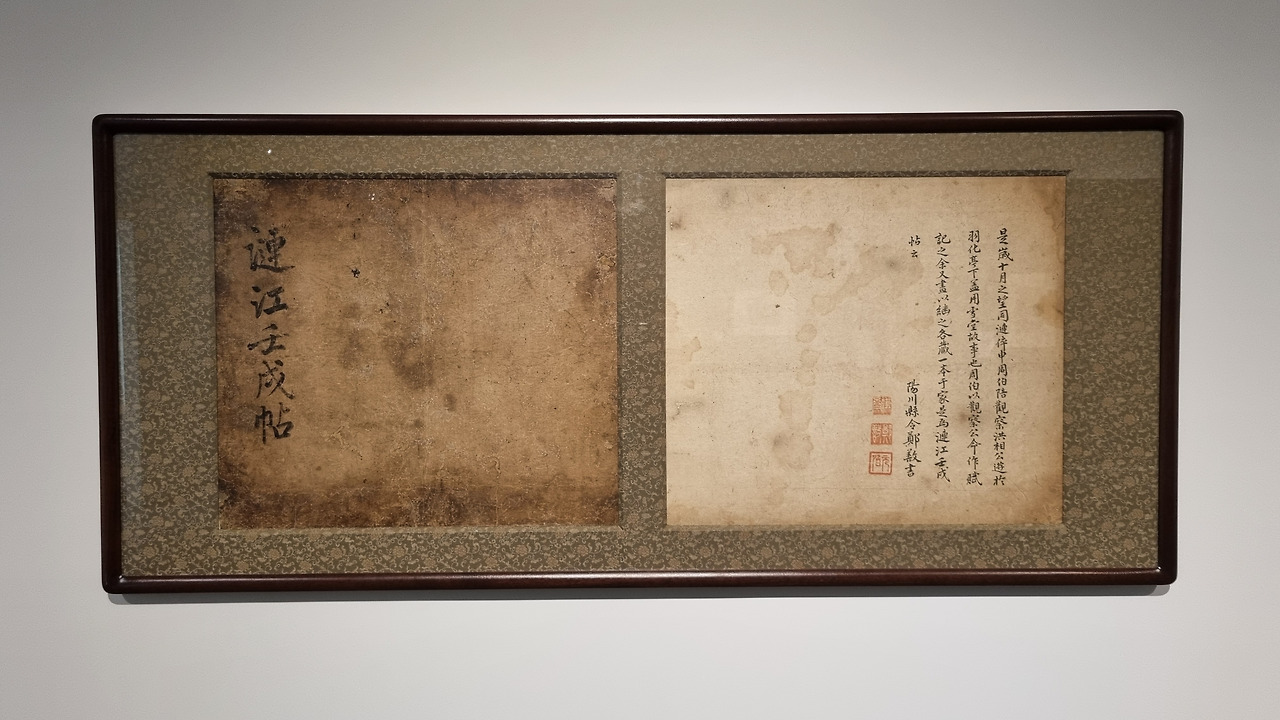 漣江壬戌帖
是歲十月之望同漣倅申周伯陪觀察洪相公遊於
羽化亭下盖用雪堂故事也周伯以觀察公命作賦
記之余又畫以繼之各藏一本于家是爲漣江壬戌
帖云
陽川縣令鄭敾書